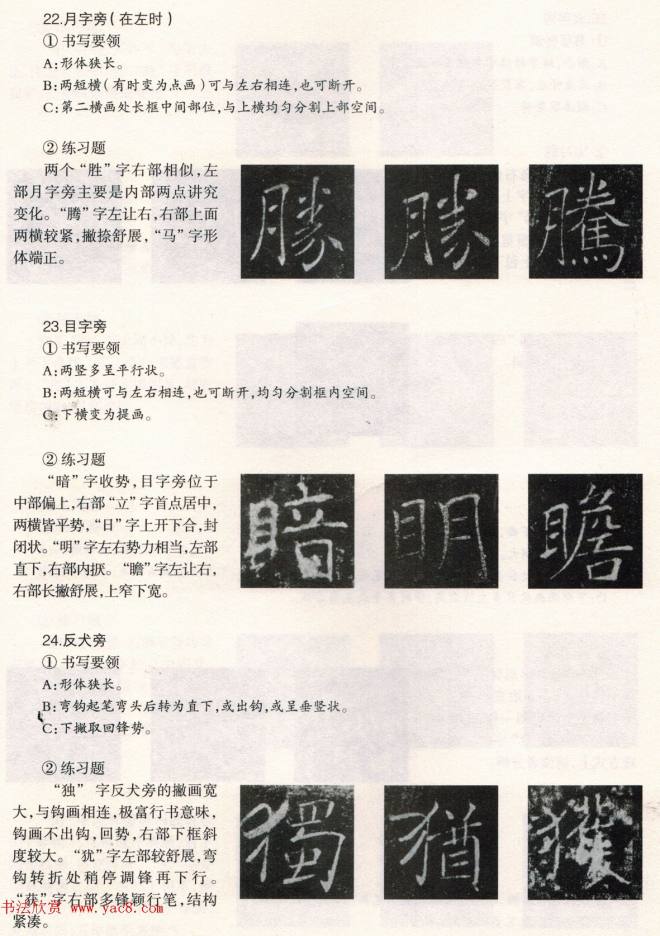 22.月字旁(在左时)
① 书写要领
A:形体狭长。
B:两短横(有时变为点画)可与左右相连,也可断开。
C:第二横画处长框中间部位,与上横均匀分割上部空间。
② 练习题
两个“胜”字右部相似,左
部月字旁主要是内部两点讲究
变化。“腾”字左让右,右部上面
两横较紧,撇捺舒展,“马”字形
体端正。
勝 勝 騰
23.目字旁
① 书写要领
A:两竖多呈平行状。
B:两短横可与左右相连,也可断开,均匀分割框内空间。
C:下横变为提画。
② 练习题
“暗”字收势,目字旁位于
中部偏上,右部“立”字首点居中,
两横皆平势,“日”字上开下合,封
闭状。“明”字左右势力相当,左部
直下,右部内抠。“瞻”字左让右,
右部长撇舒展,上窄下宽。
暗 明 瞻
24.反犬旁
① 书写要领
A:形体狭长。
B:弯钩起笔弯头后转为直下,或出钩,或呈垂竖状。
C:下撇取回锋势。
② 练习题
“独”字反犬旁的撇画宽
大,与钩画相连,极富行书意味,
钩画不出钩,回势,右部下框斜
度较大。“犹”字左部较舒展,弯
钩转折处稍停调锋再下行。
“获”字右部多锋颖行笔,结构
紧凑。
獨 猶 獲
书法欣赏 www.yac8.com